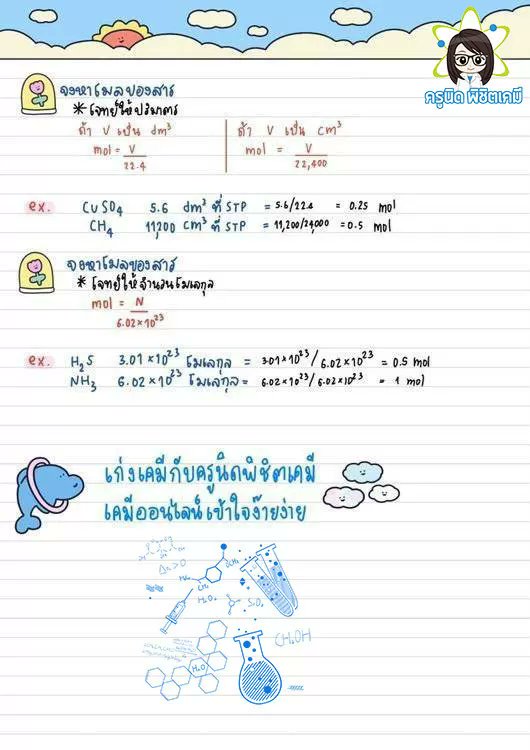 ครูนิด พิชิตเคมี
จงหาโมลของสาร
* โจทย์ให้ปริมาตร
ถ้า V เป็น dm³
mol = V
22.4
ถ้า V เป็น cm³
mol = V
22,400
ex. CuSO4 5.6 dm³ ที่ STP = 5.6/22.4 = 0.25 mol
CH4 11,200 cm³ ที่ STP = 11,200/24,000 = 0.5 mol
จงหาโมลของสาร
* โจทย์ให้จำนวนโมเลกุล
mol = N
6.02×10²³
ex. H2S 3.01×10²³ โมเลกุล = 3.01×10²³/6.02×10²³ = 0.5 mol
NH3 6.02×10²³ โมเลกุล = 6.02×10²³/6.02×10²³ = 1 mol
เก่งเคมีกับครูนิดพิชิตเคมี
เคมีออนไลน์เข้าใจง๊ายง่าย
H2O
CH3OH